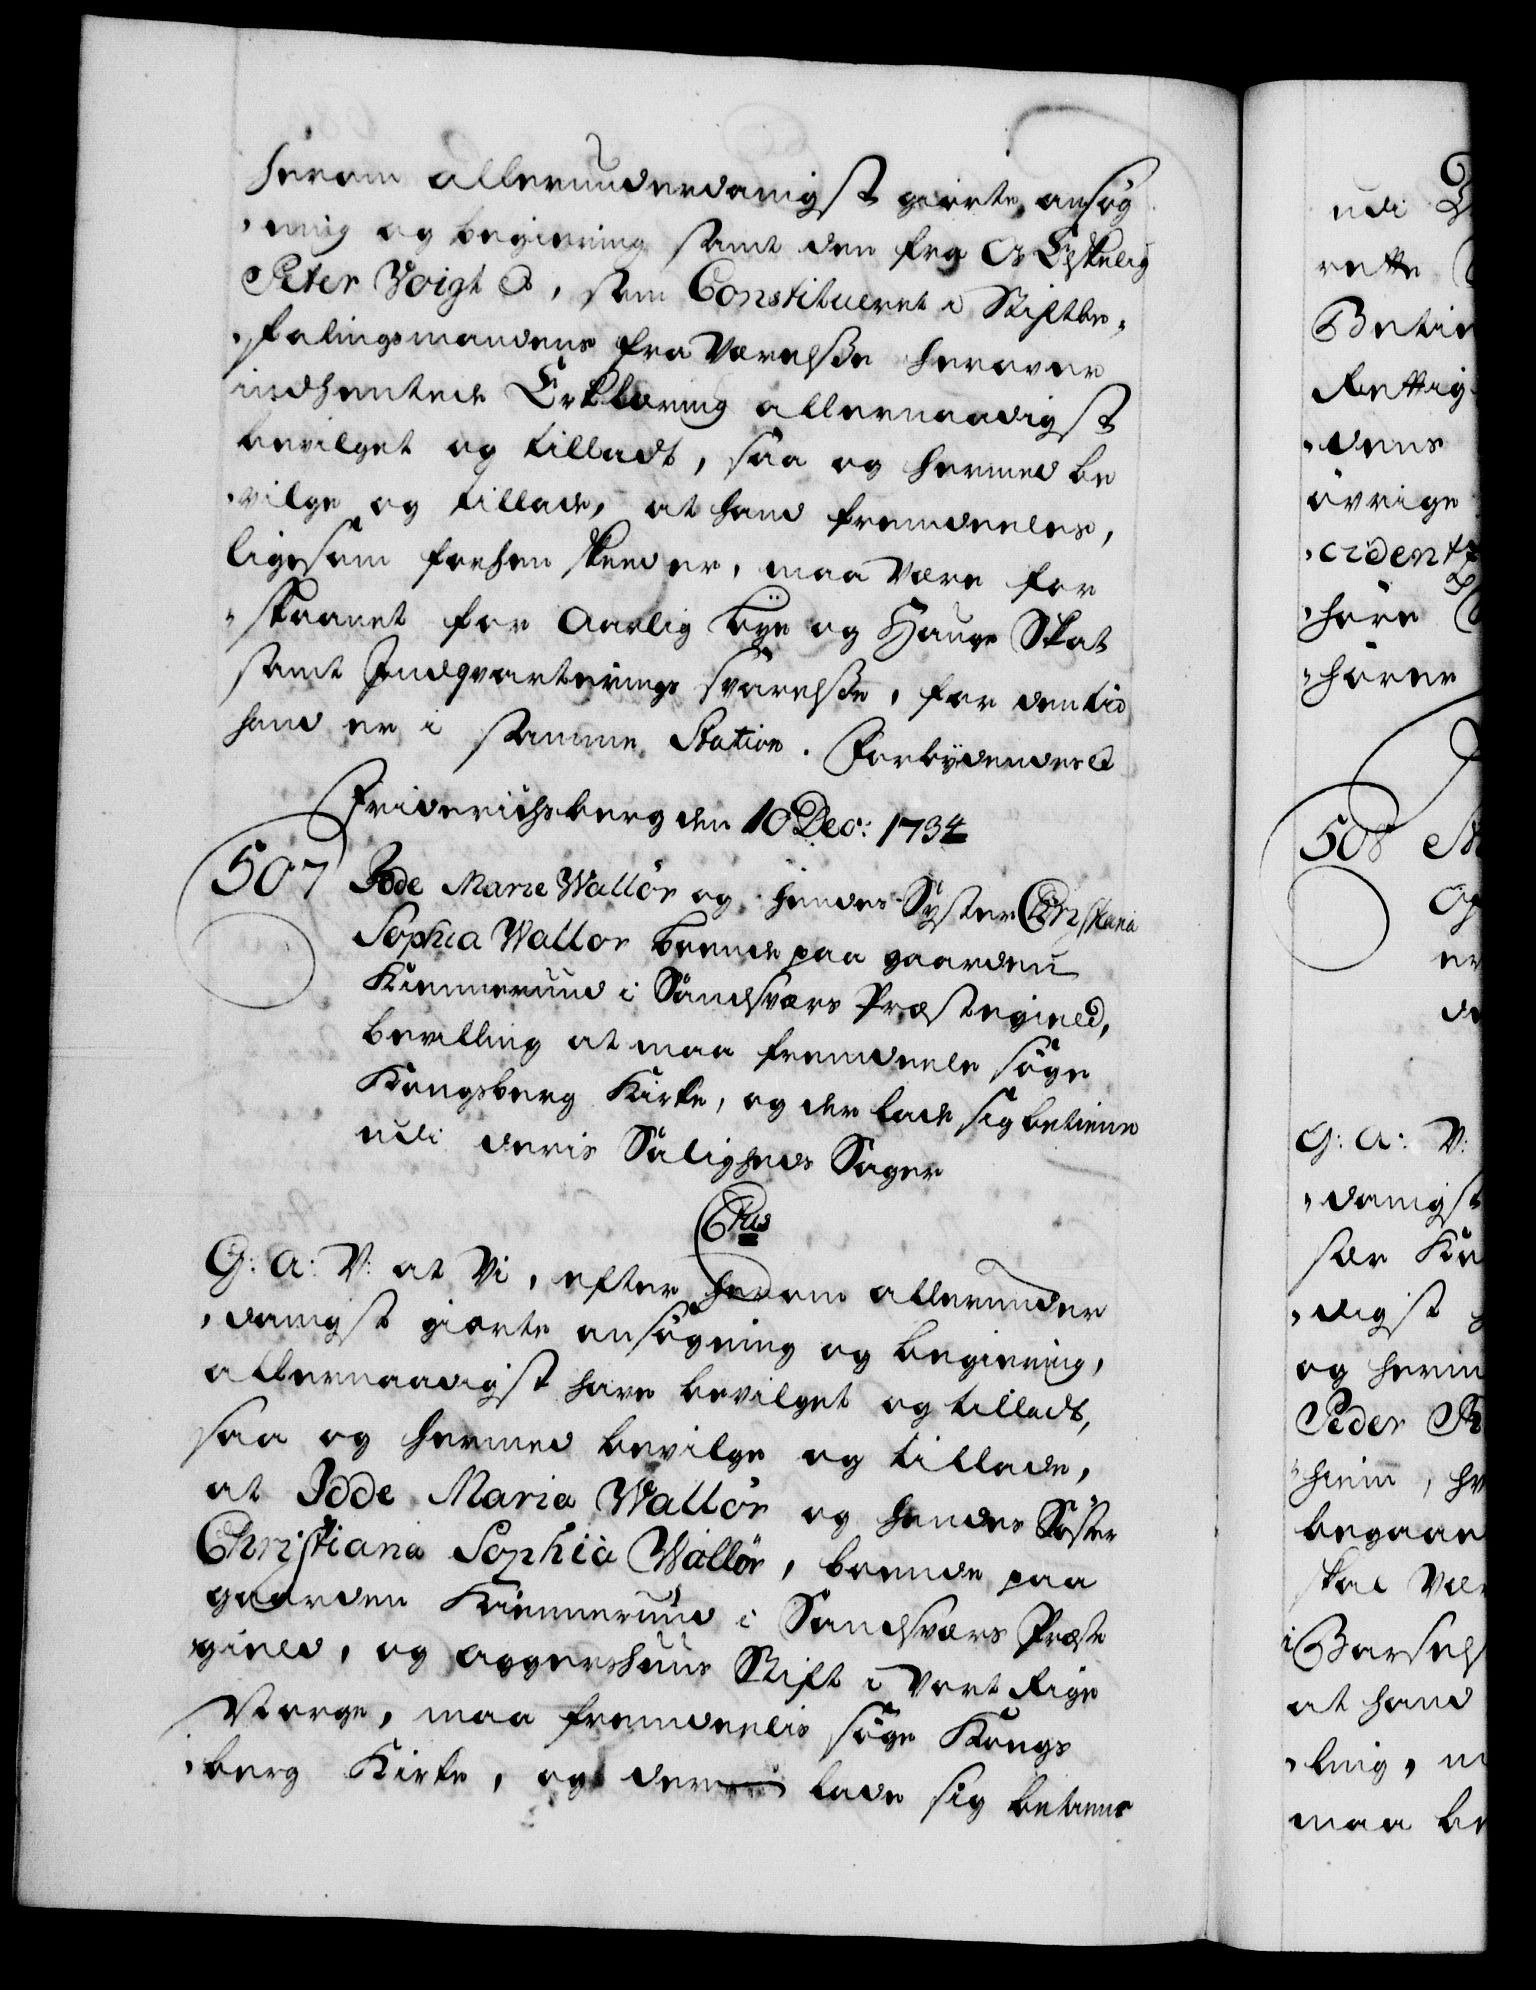 herom allerunderdanigst giorte ansøg
-ning og begiering samt den fra Os Elskelig
Peter Voigt &, som Constitueret i Stiftbe-
-falingsmandens fra Værelsse herover
indhentede Erklæring allernaadigst
bevilget og tilladt, saa og hermed be
-vilge og tillade, at hand fremdeeles,
ligesom forhen skeed er, maa være for
-skaanet for Aarlig Bÿe og Hauge Skat
samt Indqvarterings sværelsse, for den tid
hand er i samme Station. Forbÿdendes &
Friderichsberg den 10 Dec: 1734
507 Idde Marie Wallör og hendes Syster Christiana
Sophia Wallor boende paa gaarden
Kiennerud i Sandsværs Præstegield,
bevilling at maa fremdeele söge
Kongsberg Kirke, og der lade sig betiene
udi deris Saligheds Sager
C 6tus
G: A: V: at Vi, efter herom allerunder
-danigst giorte ansögning og begiering,
allernaadigst have bevilget og tilladt,
saa og hermed bevilge og tillade,
at Idde Maria Wallör og hendes Söster
Christiana Sophia Wallör, boende paa
gaarden Kiennerud i Sandsværs Præste
gield, og Aggershuus Stift i Vort Rige
Norge, maa fremdeelis söge Kongs
-berg Kirke, og der lade sig betiene
udi
rette
Betie
Rettig
-dens
övrige
-cident
-höre
-hörer
508
G: A: V:
-danigst
sær
-digst
og herm
Peder
-hiem,
begaae
skal Vær
i Barsels
at hand
-ling,
maa be